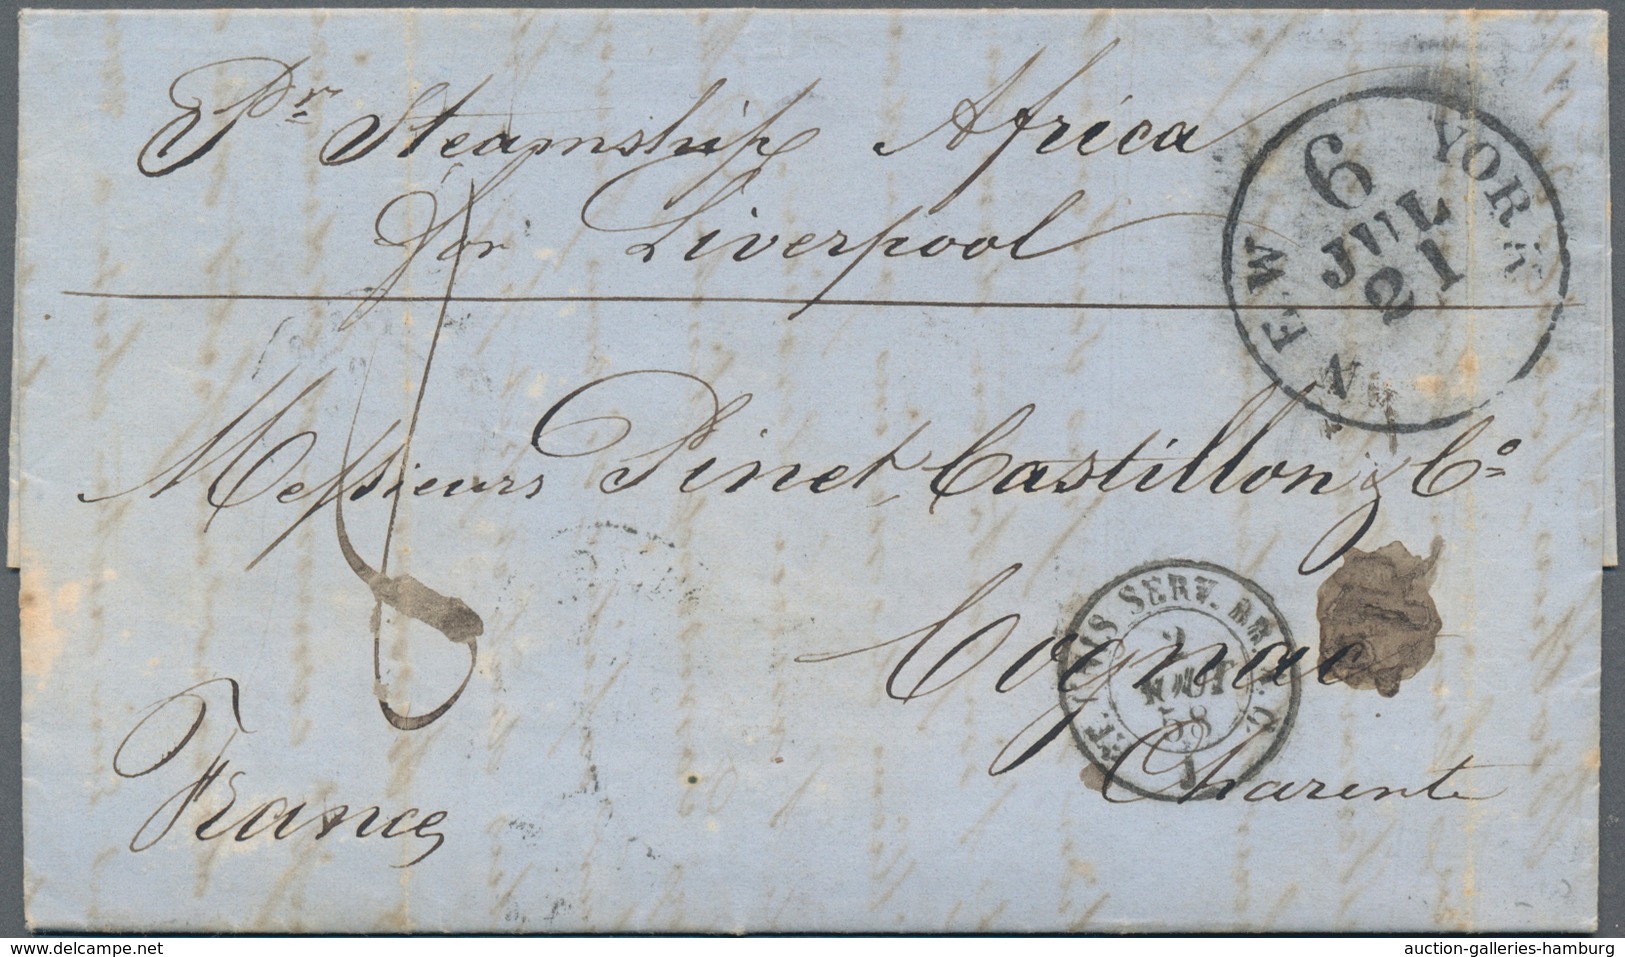 Pr Steamship Africa
for Liverpool
NEW YORK
6
JUL
21
Messieurs Pinet, Castillon & Co
Cognac
Charente
France
ET. UNIS SERV. BR. A. C.
2
AOUT
58
www.delcampe.net
auction-galleries-hamburg